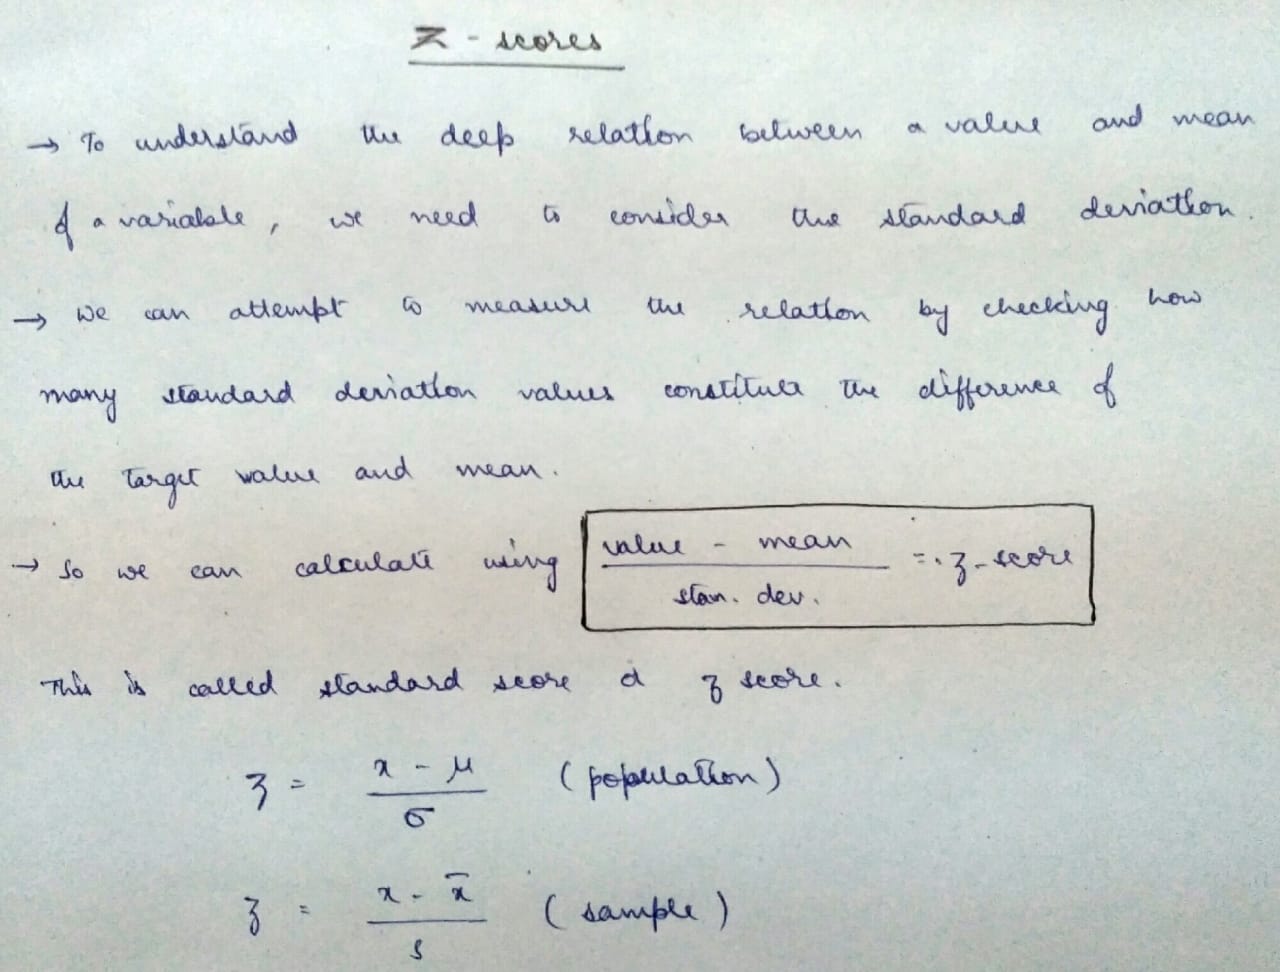 Z - scores
→ To understand the deep relation between a value and mean
of a variable, we need to consider the standard deviation.
→ we can attempt to measure the relation by checking how
many standard deviation values constitute the difference of
the target value and mean.
→ So we can calculate using (value - mean) / (stan. dev.) = z-score
This is called standard score or z score.
z = (x - μ) / σ (population)
z = (x - x̄) / s (sample)